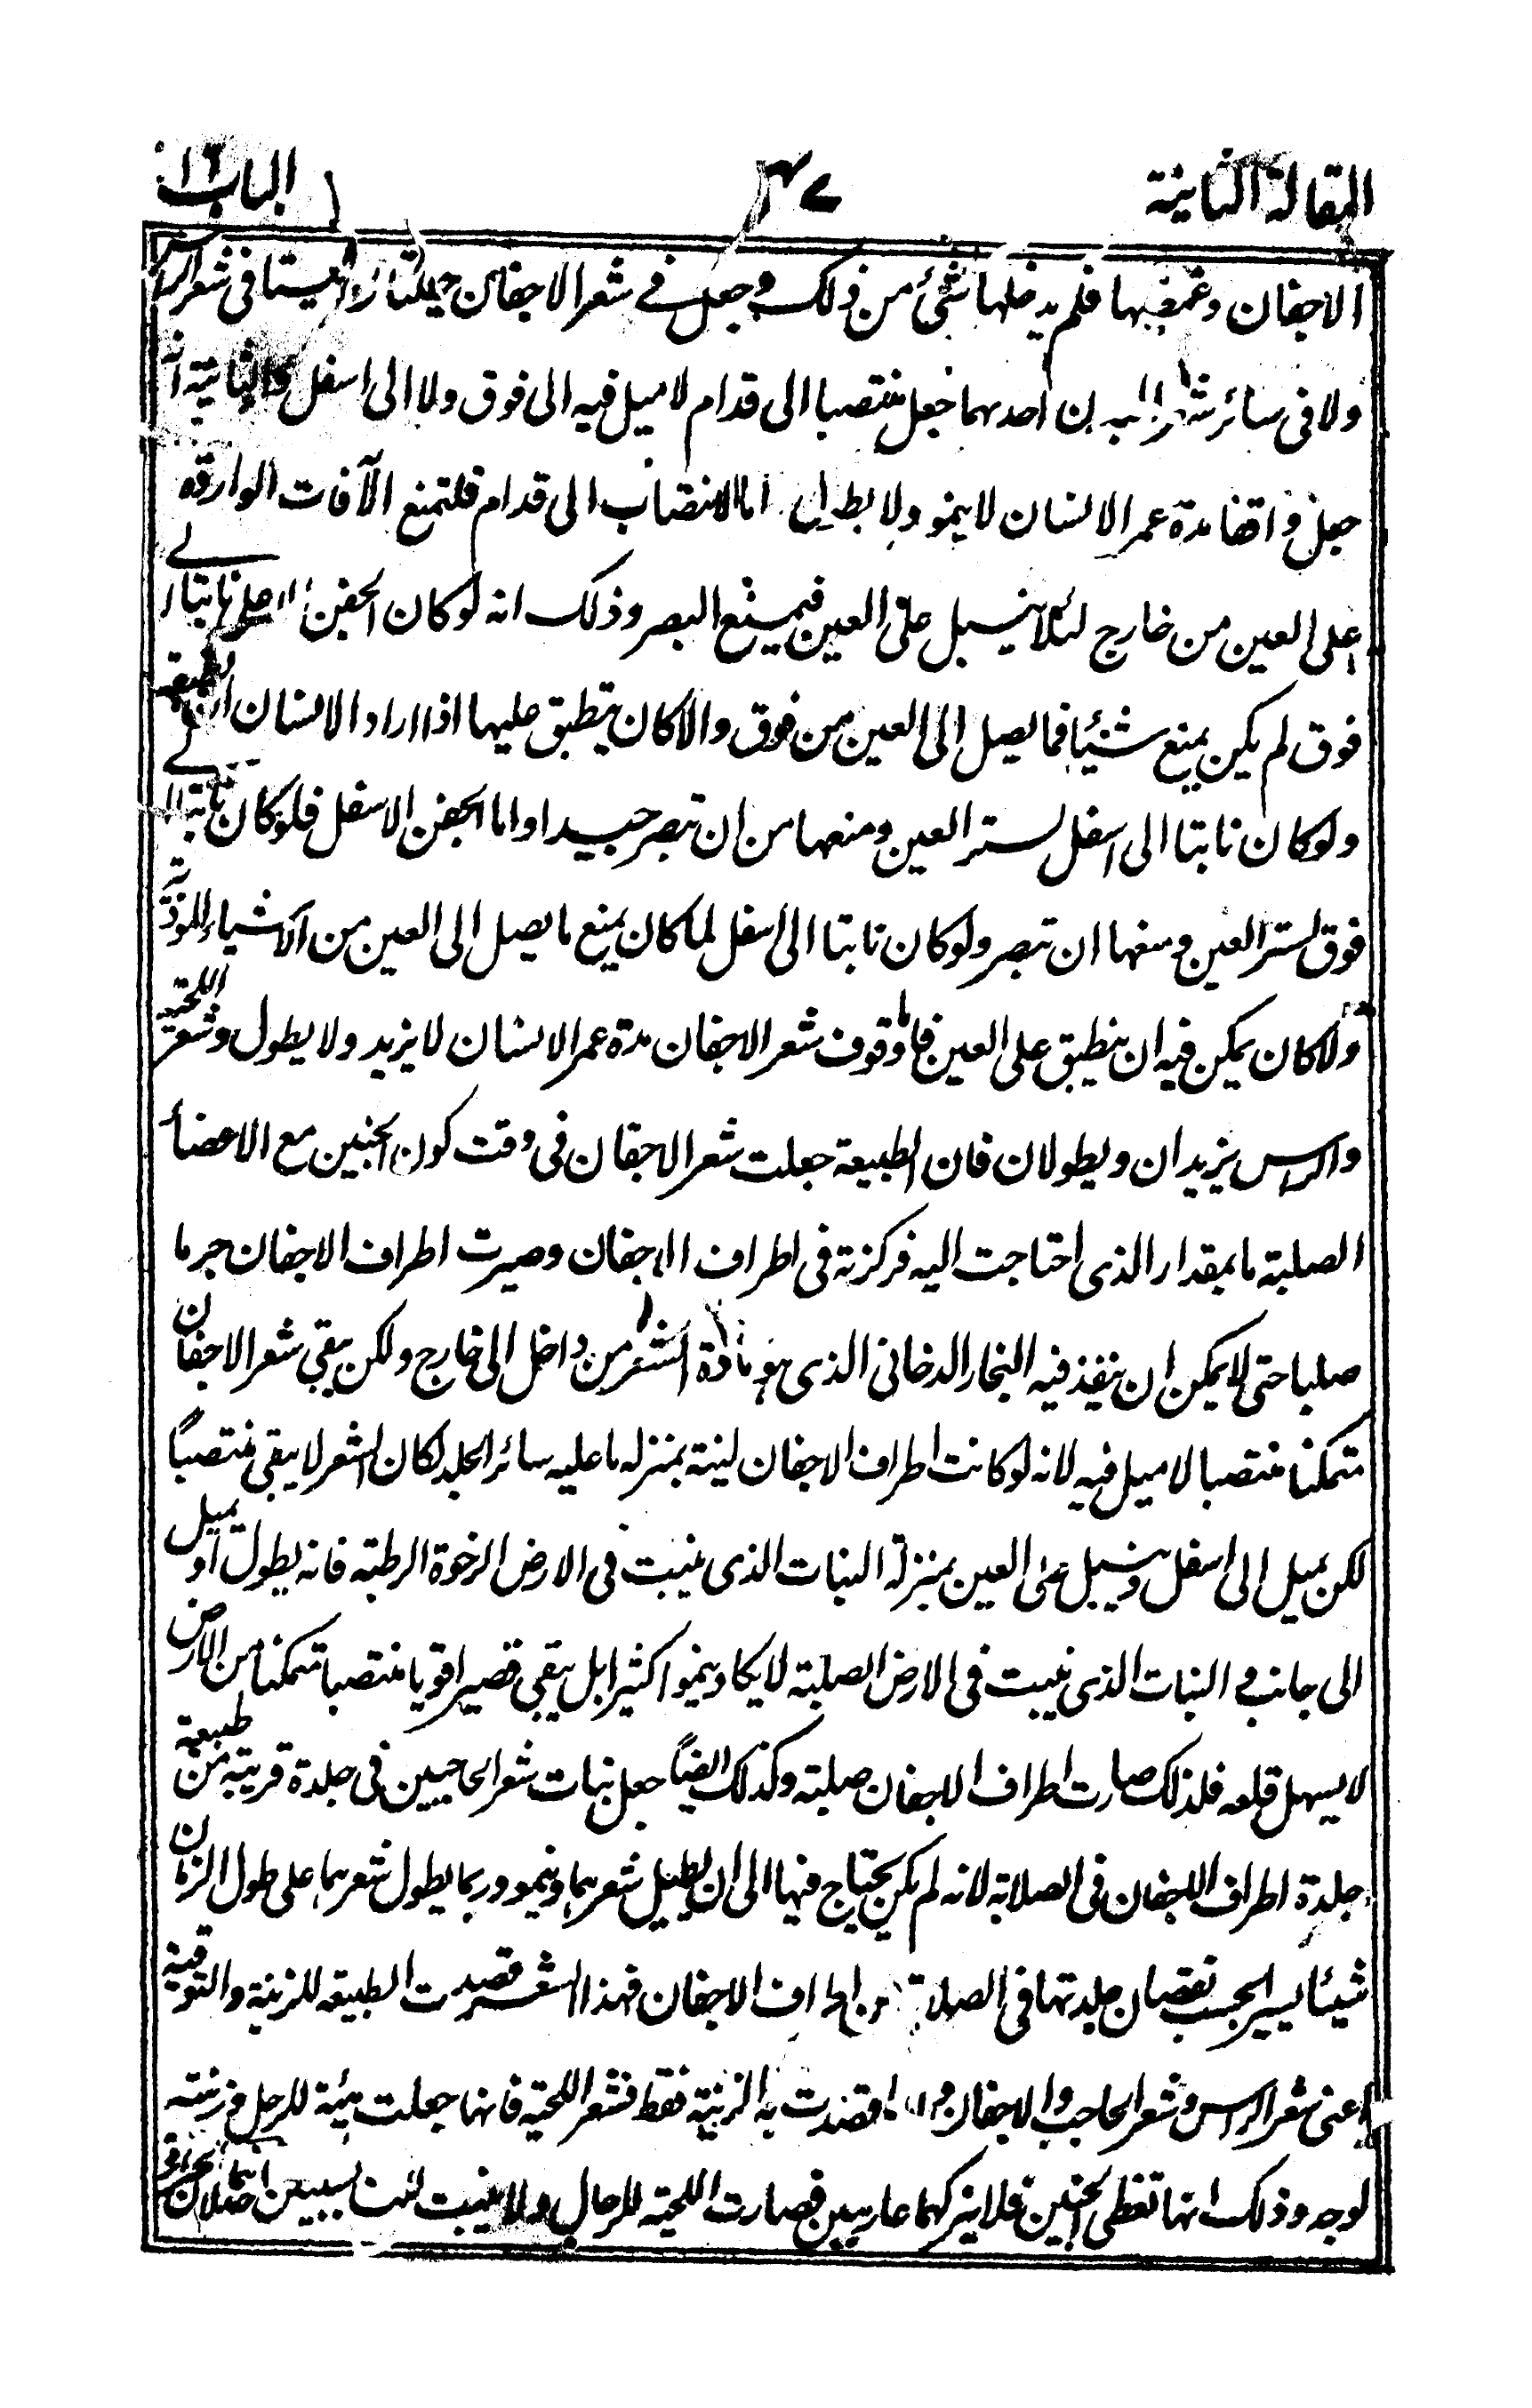 المقالة الثانية ٤٧ الباب ١٦
الاجفان وغمضها فلم يدخلها شئ من ذلك وجعل فى شعر الاجفان ليستا فى شعر الراس
ولا فى سائر شعر البدن احدهما جعل منتصبا الى قدام لا ميل فيه الى فوق ولا الى اسفل والثانية انه
جعل واقفا مدة عمر الانسان لا ينمو ولا يطول اما الانتصاب الى قدام فلتمنع الآفات الواردة
على العين من خارج لئلا ينسبل على العين فيمنع البصر وذلك انه لو كان الجفن الاعلى نابتا الى
فوق لم يكن يمنع شيئا فما يصل الى العين من فوق والا كان ينطبق عليها اذا اراد الانسان ان تطبيقه
ولو كان نابتا الى اسفل لستر العين ومنعها من ان تبصر جيدا واما الجفن الاسفل فلو كان نابتا الى
فوق لستر العين ومنعها ان تبصر ولو كان نابتا الى اسفل لما كان يمنع ما يصل الى العين من الاشياء الموذية
ولا كان يمكن فيه ان ينطبق على العين فاما وقوف شعر الاجفان مدة عمر الانسان لا يزيد ولا يطول وشعر اللحية
والراس يزيدان ويطولان فان الطبيعة جعلت شعر الاجفان فى وقت كون الجنين مع الاعضأ
الصلبة ما بمقدار الذى احتاجت اليه فركزته فى اطراف الاجفان وصيرت اطراف الاجفان جرما
صلبا حتى لا يمكن ان ينفذ فيه البخار الدخانى الذى هو مادة الشعر من داخل الى خارج ولكن يبقى شعر الاجفان
متمكنا منتصبا لا ميل فيه لانه لو كانت اطراف الاجفان لينة بمنزله ما عليه سائر الجلد لكان الشعر لا يبقى منتصباً
لكن يميل الى اسفل وينسبل على العين بمنزلة النبات الذى ينبت فى الارض الرخوة الرطبة فانه يطول او يميل
الى جانب و النبات الذى ينبت فى الارض الصلبة لا يكاد ينموا كثيرا بل يبقى قصيرا قويا منتصبا متمكنا من الارض
لا يسهل قلعه فلذلك صارت اطراف الاجفان صلبة وكذلك ايضاً جعل نبات شعر الحاجبين فى جلدة قريبة من طبيعة
جلدة اطراف الاجفان فى الصلابة لانه لم يكن يحتاج فيها الى ان يطيل شعرهما وينمو وربما يطول شعرهما على طول الزمان
شيئا يسيرا بحسب نقصان جلدتها فى الصلابة من اطراف الاجفان فهذا الشعر قصدت الطبيعه للزينة والتوقية
اعنى شعر الراس وشعر الحاجب والاجفان وما قصدت به الزينة فقط فشعر اللحية فانها جعلت هيئة للرجل وزينته
لوجه وذلك انها تغطى اللحيين فلا يتركهما عاريين فصارت اللحية للرجال ولا ينبت للنسا لسببين